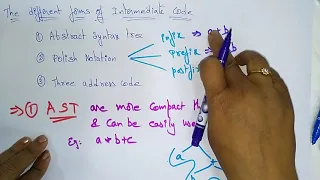 The different forms of Intermediate Code
① Abstract Syntax tree
② Polish Notation
infix ⇒
Prefix ⇒
postfix
③ Three address code
⇒ ① AST are more Compact
& Can be easily
Eg: a * b + c
(a